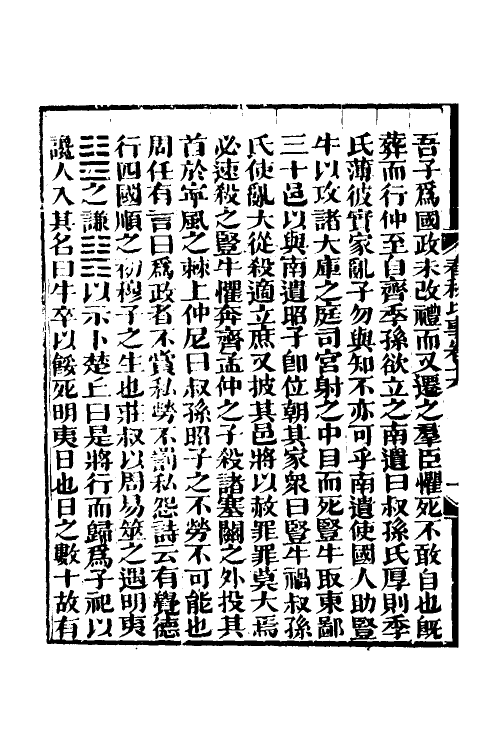 吾子爲國政未改禮而又遷之羣臣懼死不敢自也旣
葬而行仲至自齊季孫欲立之南遺曰叔孫氏厚則季
氏薄彼實家亂子勿與知不亦可乎南遺使國人助豎
牛以攻諸大庫之庭司宮射之中目而死豎牛取東鄙
三十邑以與南遺昭子卽位朝其家衆曰豎牛禍叔孫
氏使亂大從殺適立庶又披其邑將以赦罪罪莫大焉
必速殺之豎牛懼奔齊孟仲之子殺諸塞關之外投其
首於寧風之棘上仲尼曰叔孫昭子之不勞不可能也
周任有言曰爲政者不賞私勞不罰私怨詩云有覺德
行四國順之初穆子之生也莊叔以周易筮之遇明夷
䷣之謙䷎以示卜楚丘曰是將行而歸爲子祀以
讒人入其名曰牛卒以餒死明夷日也日之數十故有